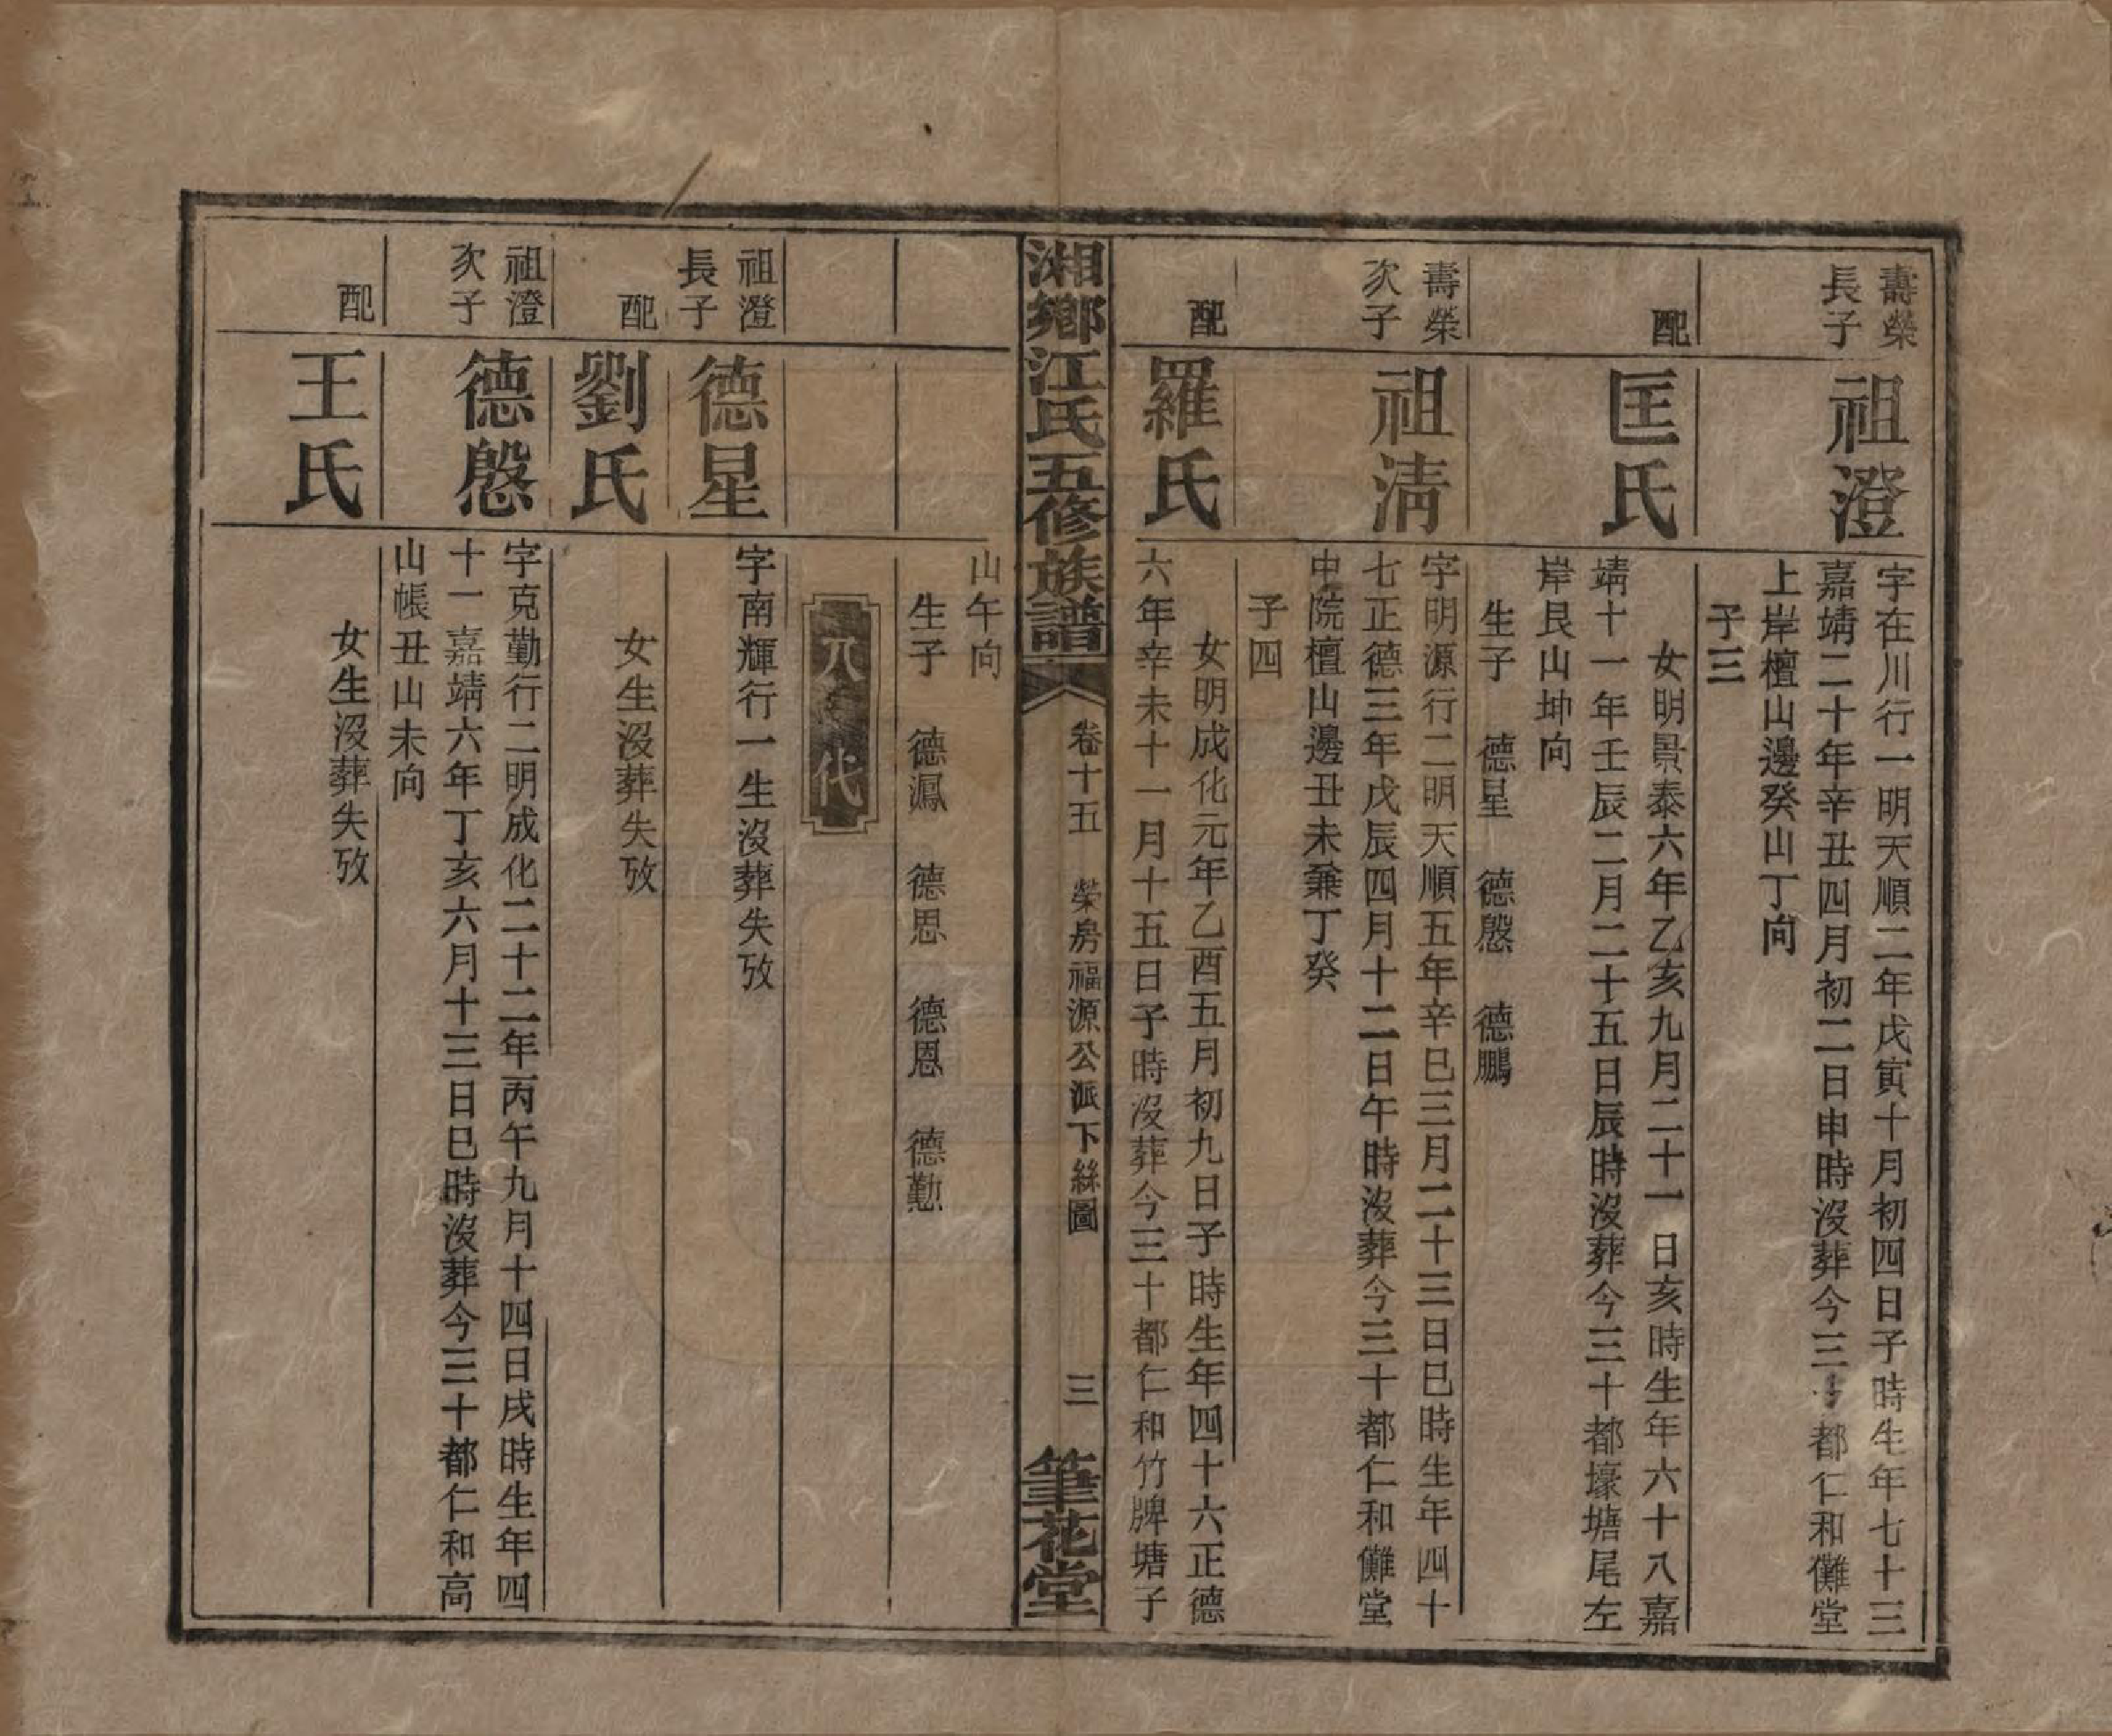 壽榮
長子
祖澄
字在川行一明天順二年戊寅十月初四日子時生年七十三
嘉靖二十年辛丑四月初二日申時沒葬今三十都仁和儺堂
上岸檀山邊癸山丁向
子三
配
匡氏
女明景泰六年乙亥九月二十一日亥時生年六十八嘉
靖十一年壬辰二月二十五日辰時沒葬今三十都壕塘尾左
岸艮山坤向
生子 德星 德慇 德鵬
壽榮
次子
祖淸
字明源行二明天順五年辛巳三月二十三日巳時生年四十
七正德三年戊辰四月十二日午時沒葬今三十都仁和儺堂
中院檀山邊丑未兼丁癸
子四
配
羅氏
女明成化元年乙酉五月初九日子時生年四十六正德
六年辛未十一月十五日子時沒葬今三十都仁和竹牌塘子
湘鄉江氏五修族譜
卷十五 榮房福源公派下絲圖
三
筆花堂
山午向
生子 德鳳 德思 德恩 德懃
八代
祖澄
長子
德星
字南輝行一生沒葬失攷
配
劉氏
女生沒葬失攷
祖澄
次子
德慇
字克勤行二明成化二十二年丙午九月十四日戌時生年四
十一嘉靖六年丁亥六月十三日巳時沒葬今三十都仁和高
山帳丑山未向
配
王氏
女生沒葬失攷